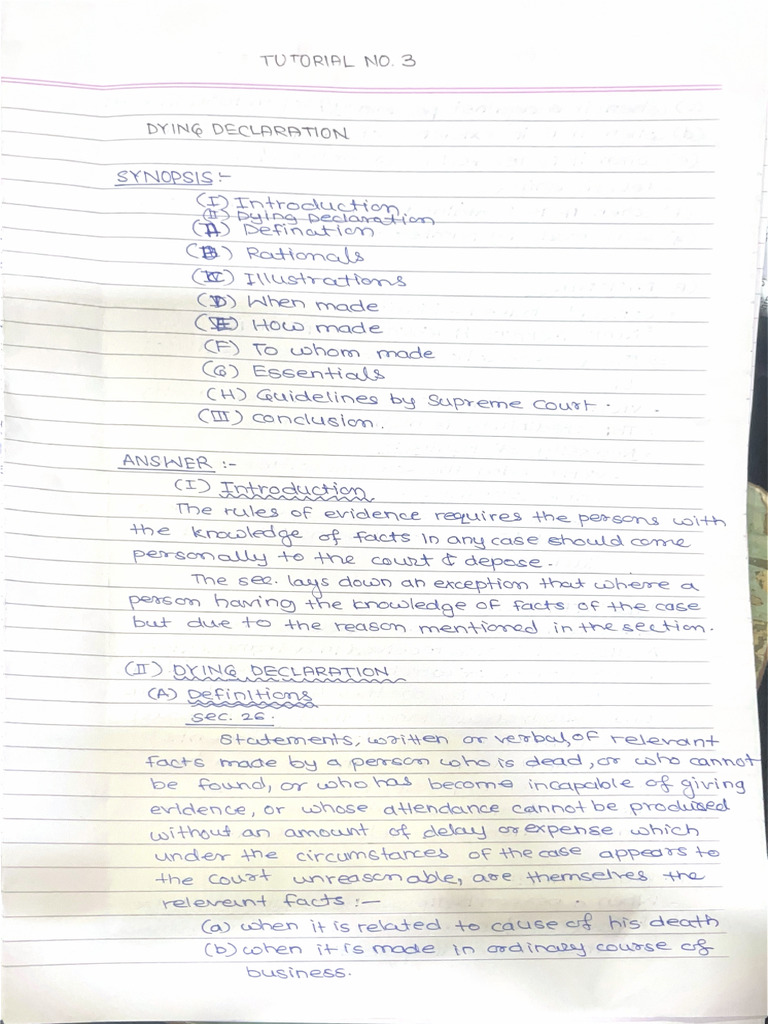 TUTORIAL NO. 3
DYING DECLARATION
SYNOPSIS :-
(I) Introduction
(II) Dying Declaration
(A) Defination
(B) Rationals
(C) Illustrations
(D) When made
(E) How made
(F) To whom made
(G) Essentials
(H) Guidelines by Supreme Court.
(III) Conclusion.
ANSWER :-
(I) Introduction
The rules of evidence requires the persons with
the knowledge of facts in any case should come
personally to the court & depose.
The sec. lays down an exception that where a
person having the knowledge of facts of the case
but due to the reason mentioned in the section.
(II) DYING DECLARATION
(A) Definitions
sec. 26.
Statements, written or verbal, of relevant
facts made by a person who is dead, or who cannot
be found, or who has become incapable of giving
evidence, or whose attendance cannot be produced
without an amount of delay or expense which
under the circumstances of the case appears to
the court unreasonable, are themselves the
relevent facts :-
(a) when it is related to cause of his death
(b) when it is made in ordinary course of
business.